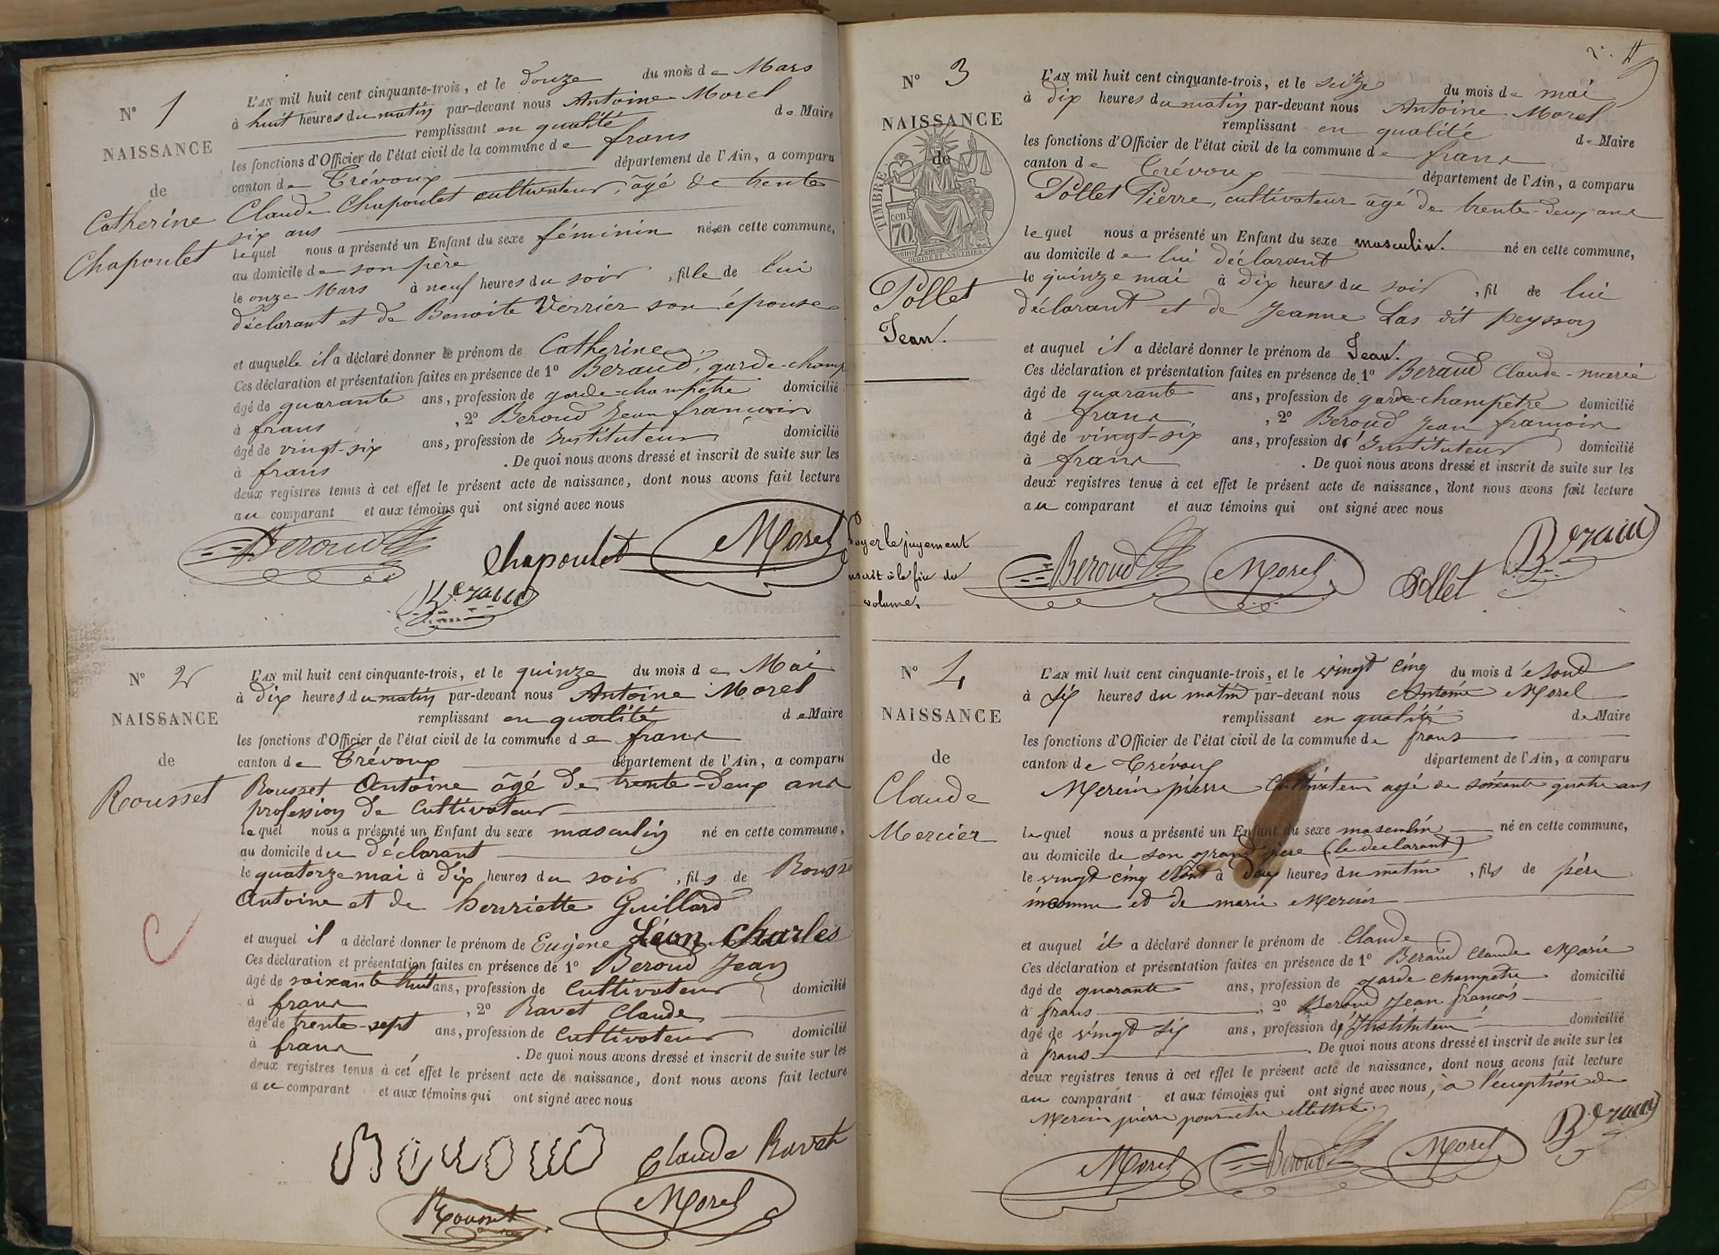 N° 1
NAISSANCE
de
Catherine
Chapoulet
L'AN mil huit cent cinquante-trois, et le douze du mois de Mars
à huit heures du matin par-devant nous Antoine Morel
remplissant en qualité de Maire
les fonctions d'Officier de l'état civil de la commune de frans
canton de Trévoux département de l'Ain, a comparu
Claude Chapoulet cultivateur, âgé de trente
six ans
lequel nous a présenté un Enfant du sexe féminin née en cette commune,
au domicile de son père
le onze Mars à neuf heures du soir, fille de lui
déclarant et de Benoite Verrier son épouse
et auquelle il a déclaré donner le prénom de Catherine
Ces déclaration et présentation faites en présence de 1° Beraud, garde-champ
âgé de quarante ans, profession de garde-champêtre domicilié
à frans, 2° Beroud Jean françois
âgé de vingt-six ans, profession de Instituteur domicilié
à frans. De quoi nous avons dressé et inscrit de suite sur les
deux registres tenus à cet effet le présent acte de naissance, dont nous avons fait lecture
au comparant et aux témoins qui ont signé avec nous
Beroud Chapoulet Morel
Beraud
N° 2
NAISSANCE
de
Rousset
L'AN mil huit cent cinquante-trois, et le quinze du mois de Mai
à dix heures du matin par-devant nous Antoine Morel
remplissant en qualité de Maire
les fonctions d'Officier de l'état civil de la commune de frans
canton de Trévoux département de l'Ain, a comparu
Rousset Antoine âgé de trente-deux ans
profession de cultivateur
lequel nous a présenté un Enfant du sexe masculin né en cette commune,
au domicile du déclarant
le quatorze mai à dix heures du soir, fils de Rouss
Antoine et de henriette Guillard
et auquel il a déclaré donner le prénom de Eugène Léon Charles
Ces déclaration et présentation faites en présence de 1° Beroud Jean
âgé de soixante huit ans, profession de cultivateur domicilié
à frans, 2° Ravet Claude
âgé de trente-sept ans, profession de cultivateur domicilié
à frans. De quoi nous avons dressé et inscrit de suite sur les
deux registres tenus à cet effet le présent acte de naissance, dont nous avons fait lecture
au comparant et aux témoins qui ont signé avec nous
Beroud Claude Ravet
Rousset Morel
N° 3
NAISSANCE
de
TIMBRE
70
Pollet
Jean.
L'AN mil huit cent cinquante-trois, et le seize du mois de mai
à dix heures du matin par-devant nous Antoine Morel
remplissant en qualité de Maire
les fonctions d'Officier de l'état civil de la commune de frans
canton de Trévoux département de l'Ain, a comparu
Pollet Pierre, cultivateur âgé de trente-deux ans
lequel nous a présenté un Enfant du sexe masculin. né en cette commune,
au domicile de lui déclarant
le quinze mai à dix heures du soir, fil de lui
déclarant et de Jeanne Las dit peysson
et auquel il a déclaré donner le prénom de Jean.
Ces déclaration et présentation faites en présence de 1° Beraud Claude-marie
âgé de quarante ans, profession de garde-champêtre domicilié
à frans, 2° Beroud Jean françois
âgé de vingt-six ans, profession d'Instituteur domicilié
à frans. De quoi nous avons dressé et inscrit de suite sur les
deux registres tenus à cet effet le présent acte de naissance, dont nous avons fait lecture
au comparant et aux témoins qui ont signé avec nous
Voyez le jugement
inscrit à la fin du
volume.
Beroud Morel Pollet Beraud
N° 4
NAISSANCE
de
Claude
Mercier
L'AN mil huit cent cinquante-trois, et le vingt cinq du mois d'Aout
à dix heures du matin par-devant nous Antoine Morel
remplissant en qualité de Maire
les fonctions d'Officier de l'état civil de la commune de frans
canton de Trévoux département de l'Ain, a comparu
Mercier pierre Cultivateur agé de soixante quatre ans
lequel nous a présenté un Enfant du sexe masculin né en cette commune,
au domicile de son grand père (le déclarant)
le vingt cinq Aout à deux heures du matin, fils de père
inconnu et de marie Mercier
et auquel il a déclaré donner le prénom de Claude
Ces déclaration et présentation faites en présence de 1° Beraud Claude Marie
âgé de quarante ans, profession de garde champetre domicilié
à frans, 2° Beroud Jean françois
âgé de vingt six ans, profession d'Instituteur domicilié
à frans. De quoi nous avons dressé et inscrit de suite sur les
deux registres tenus à cet effet le présent acte de naissance, dont nous avons fait lecture
au comparant et aux témoins qui ont signé avec nous, a l'exception de
Mercier pierre pour etre illettré.
Morel Beroud Morel Beraud